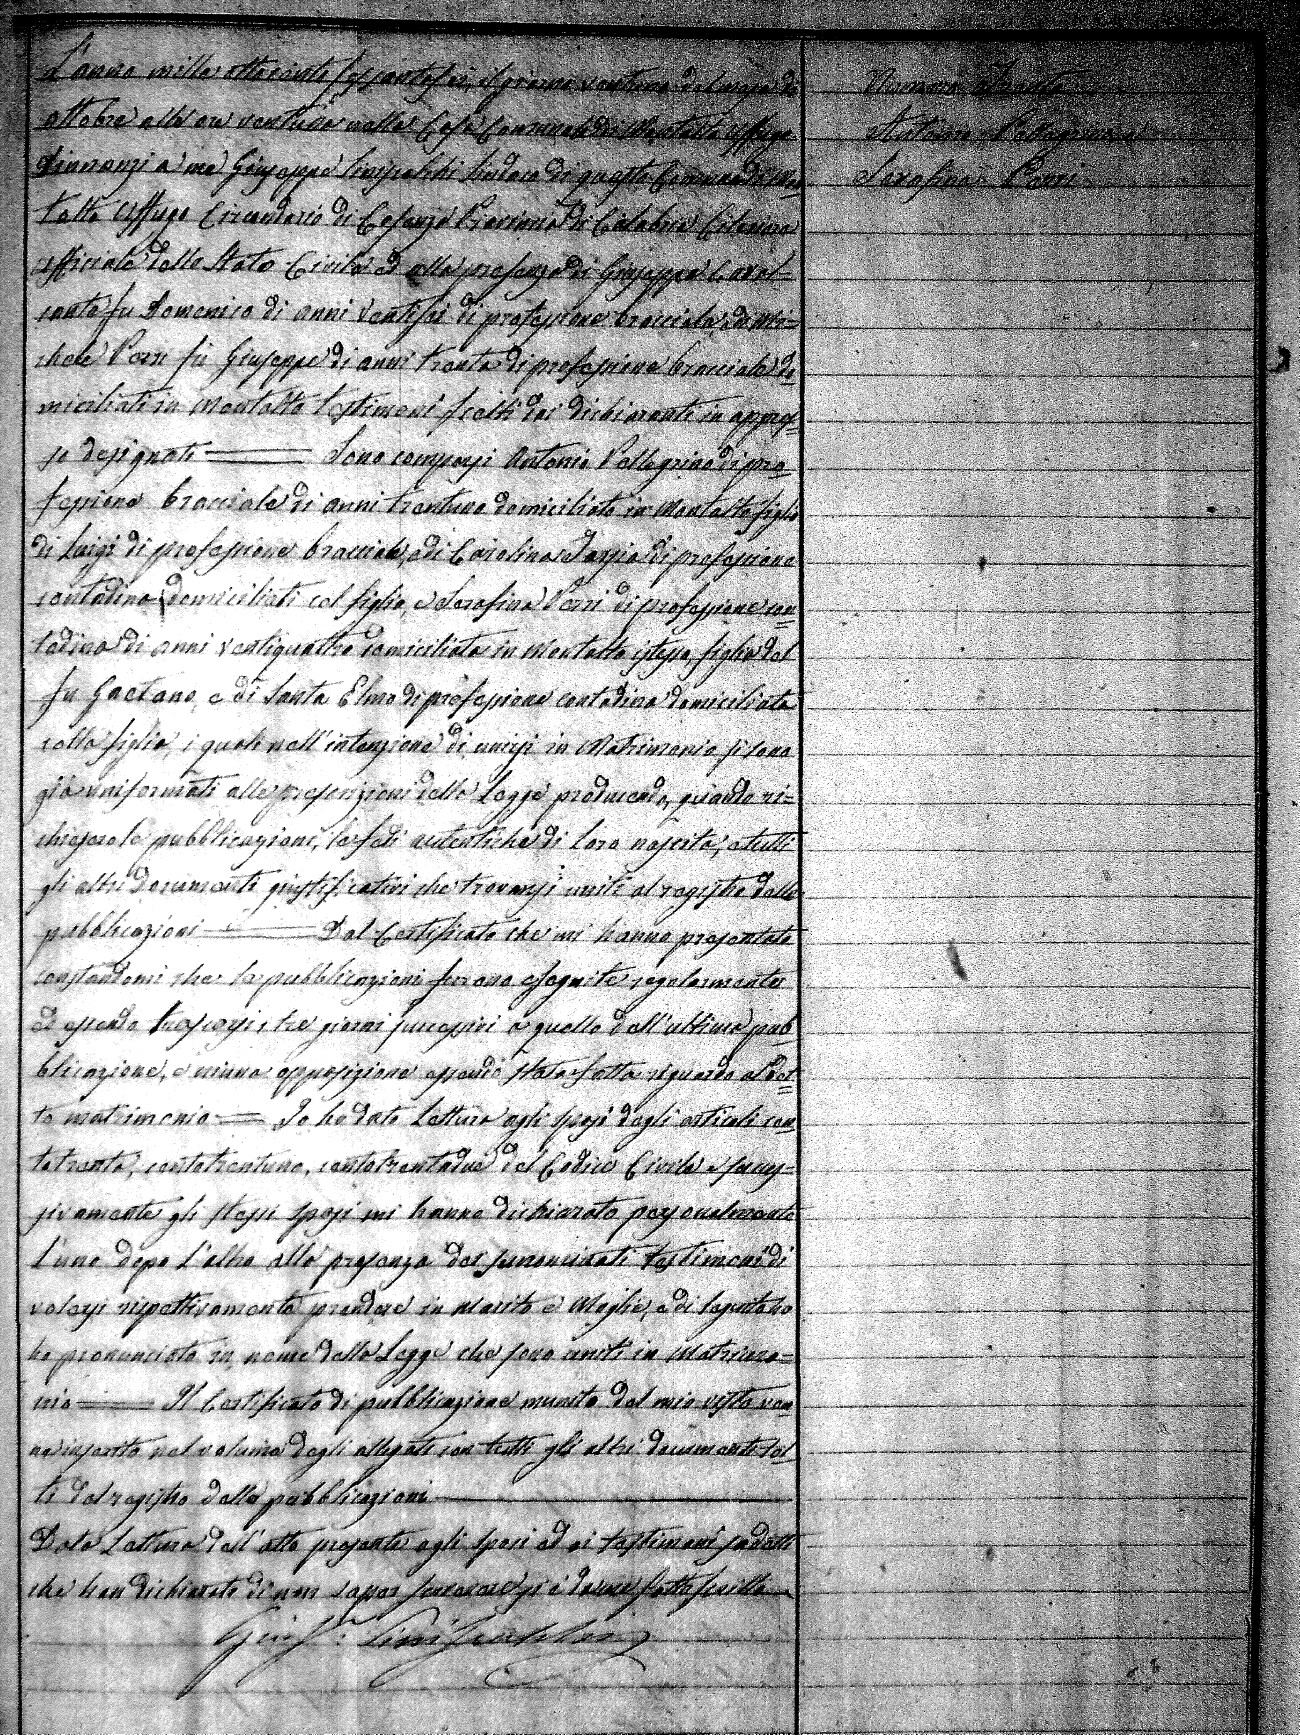 L'anno mille ottocento sessantasei, il giorno ventuno del mese di
ottobre alle ore ventuno nella Casa Comunale di Montalto Uffugo
Dinnanzi a me Giuseppe Sindaco di questo Comune di Mon
talto Uffugo Circondario di Cosenza Provincia di Calabria Citeriore
ufficiale dello Stato Civile ed alla presenza di Giuseppe Caval-
cante fu Domenico di anni ventisei di professione bracciale, e di Mi=
chele Porri fu Giuseppe di anni trenta di professione bracciale do
miciliati in Montalto testimoni scelti dai dichiaranti in appres
so designati Sono comparsi Antonio Pellegrino di pro
fessione bracciale di anni trentuno domiciliato in Montalto figlio
di Luigi di professione bracciale, e di Carolina Tarsia di professione
contadina domiciliati col figlio, e Serafina Porri di professione con
tadina di anni ventiquattro domiciliata in Montalto istesso, figlia del
fu Gaetano, e di Santa Elmo di professione contadina domiciliata
colla figlia, i quali nell'intenzione di unirsi in Matrimonio si sono
già uniformati alle prescrizioni della Legge producendo, quando ri=
chiesero le pubblicazioni, le fedi autentiche di loro nascita, e tutti
gli altri documenti giustificativi che trovansi uniti al registro delle
pubblicazioni Dal Certificato che mi hanno presentato
constandomi che le pubblicazioni furono eseguite regolarmente
ed essendo trascorsi tre giorni successivi a quello dell'ultima pub
blicazione, e niuna opposizione essendo stata fatta riguardo al det
to matrimonio Io ho dato lettura agli sposi degli articoli cen
totrenta, centotrentuno, centotrentadue del Codice Civile e succes=
sivamente gli stessi sposi mi hanno dichiarato personalmente
l'uno dopo l'altro alla presenza dei testimoni di
volersi rispettivamente prendere in Marito e Moglie, e di seguito ho
ho pronunciato in nome della Legge che sono uniti in Matrimo=
nio Il Certificato di pubblicazione munito del mio visto ven
ne inserito nel volume degli allegati con tutti gli altri documenti
ti del registro delle pubblicazioni
Data lettura dell'atto presente agli sposi ed ai testimoni sudetti
che han dichiarato di non saper scrivere si è da me sottoscritto
Gius:
Numero
Antonio Pellegrino e
Serafina Porri